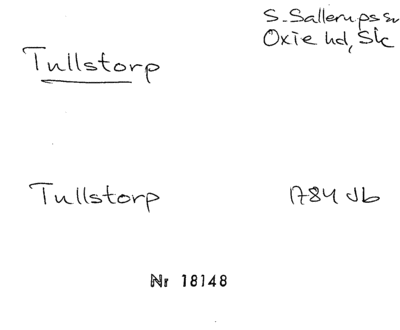 S. Sallerups sn
Oxie hd, Sk
Tullstorp
Tullstorp 1784 Jb
Nr 18148